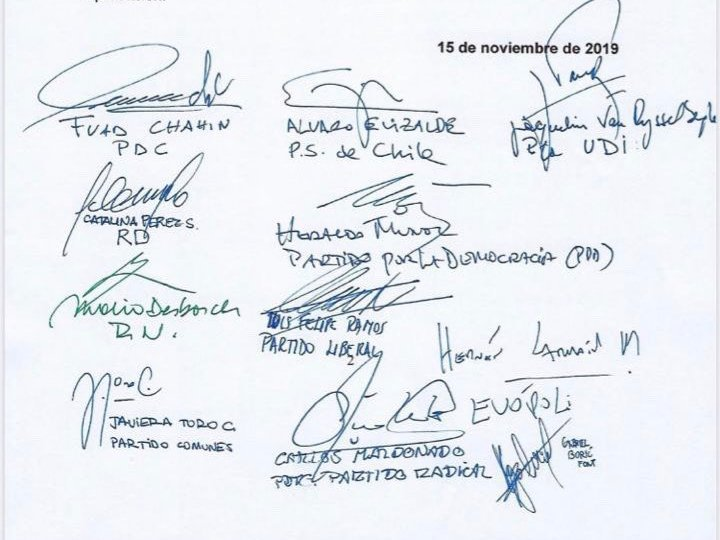 15 de noviembre de 2019
FUAD CHAHIN
PDC
ALVARO ELIZALDE
P.S. de Chile
Jacquelin Van Rysselberghe
Pta UDI
CATALINA PEREZ S.
RD
HERALDO MUÑOZ
PARTIDO POR LA DEMOCRACIA (PPD)
Mario Desbordes
R.N.
LUIS FELIPE RAMOS
PARTIDO LIBERAL
HERNÁN LARRAÍN M
EVÓPOLI
JAVIERA TORO C.
PARTIDO COMUNES
CARLOS MALDONADO
POR PARTIDO RADICAL
GABRIEL
BORIC
FONT